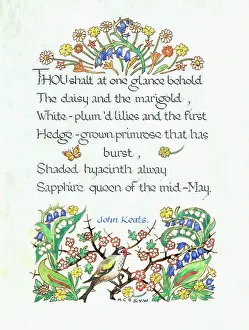 THOU shalt at one glance behold
The daisy and the marigold ,
White-plum'd lilies and the first
Hedge-grown primrose that has
burst ,
Shaded hyacinth alway
Sapphire queen of the mid-May.
John Keats.